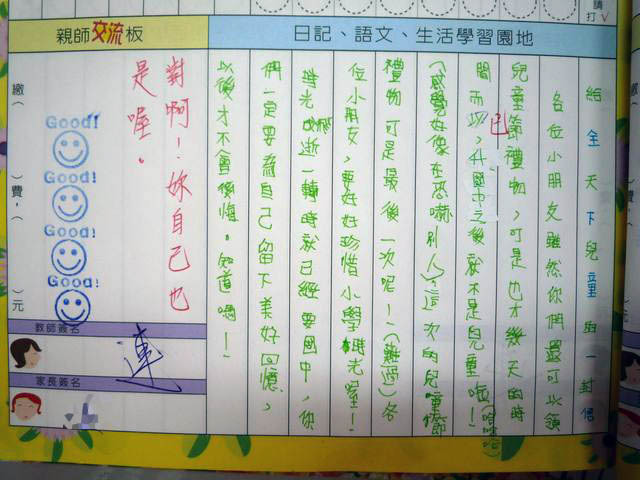 請打√
日記、語文、生活學習園地
給全天下兒童的一封信
各位小朋友雖然你們還可以領
兒童節禮物,可是也才幾天的時
間而已,升國中之後就不是兒童啦!
(感覺好像在恐嚇別人),這次的兒童節
禮物可是最後一次呢!(難過)各
位小朋友,要好好珍惜小學時光喔!
時光飛逝一轉時就已經要國中,你
們一定要為自己留下美好回憶,
以後才不會後悔。知道嗎!
親師交流板
對啊!妳自己也
是喔。
Good!
Good!
Good!
Good!
繳( )費,( )元
教師簽名
連
家長簽名